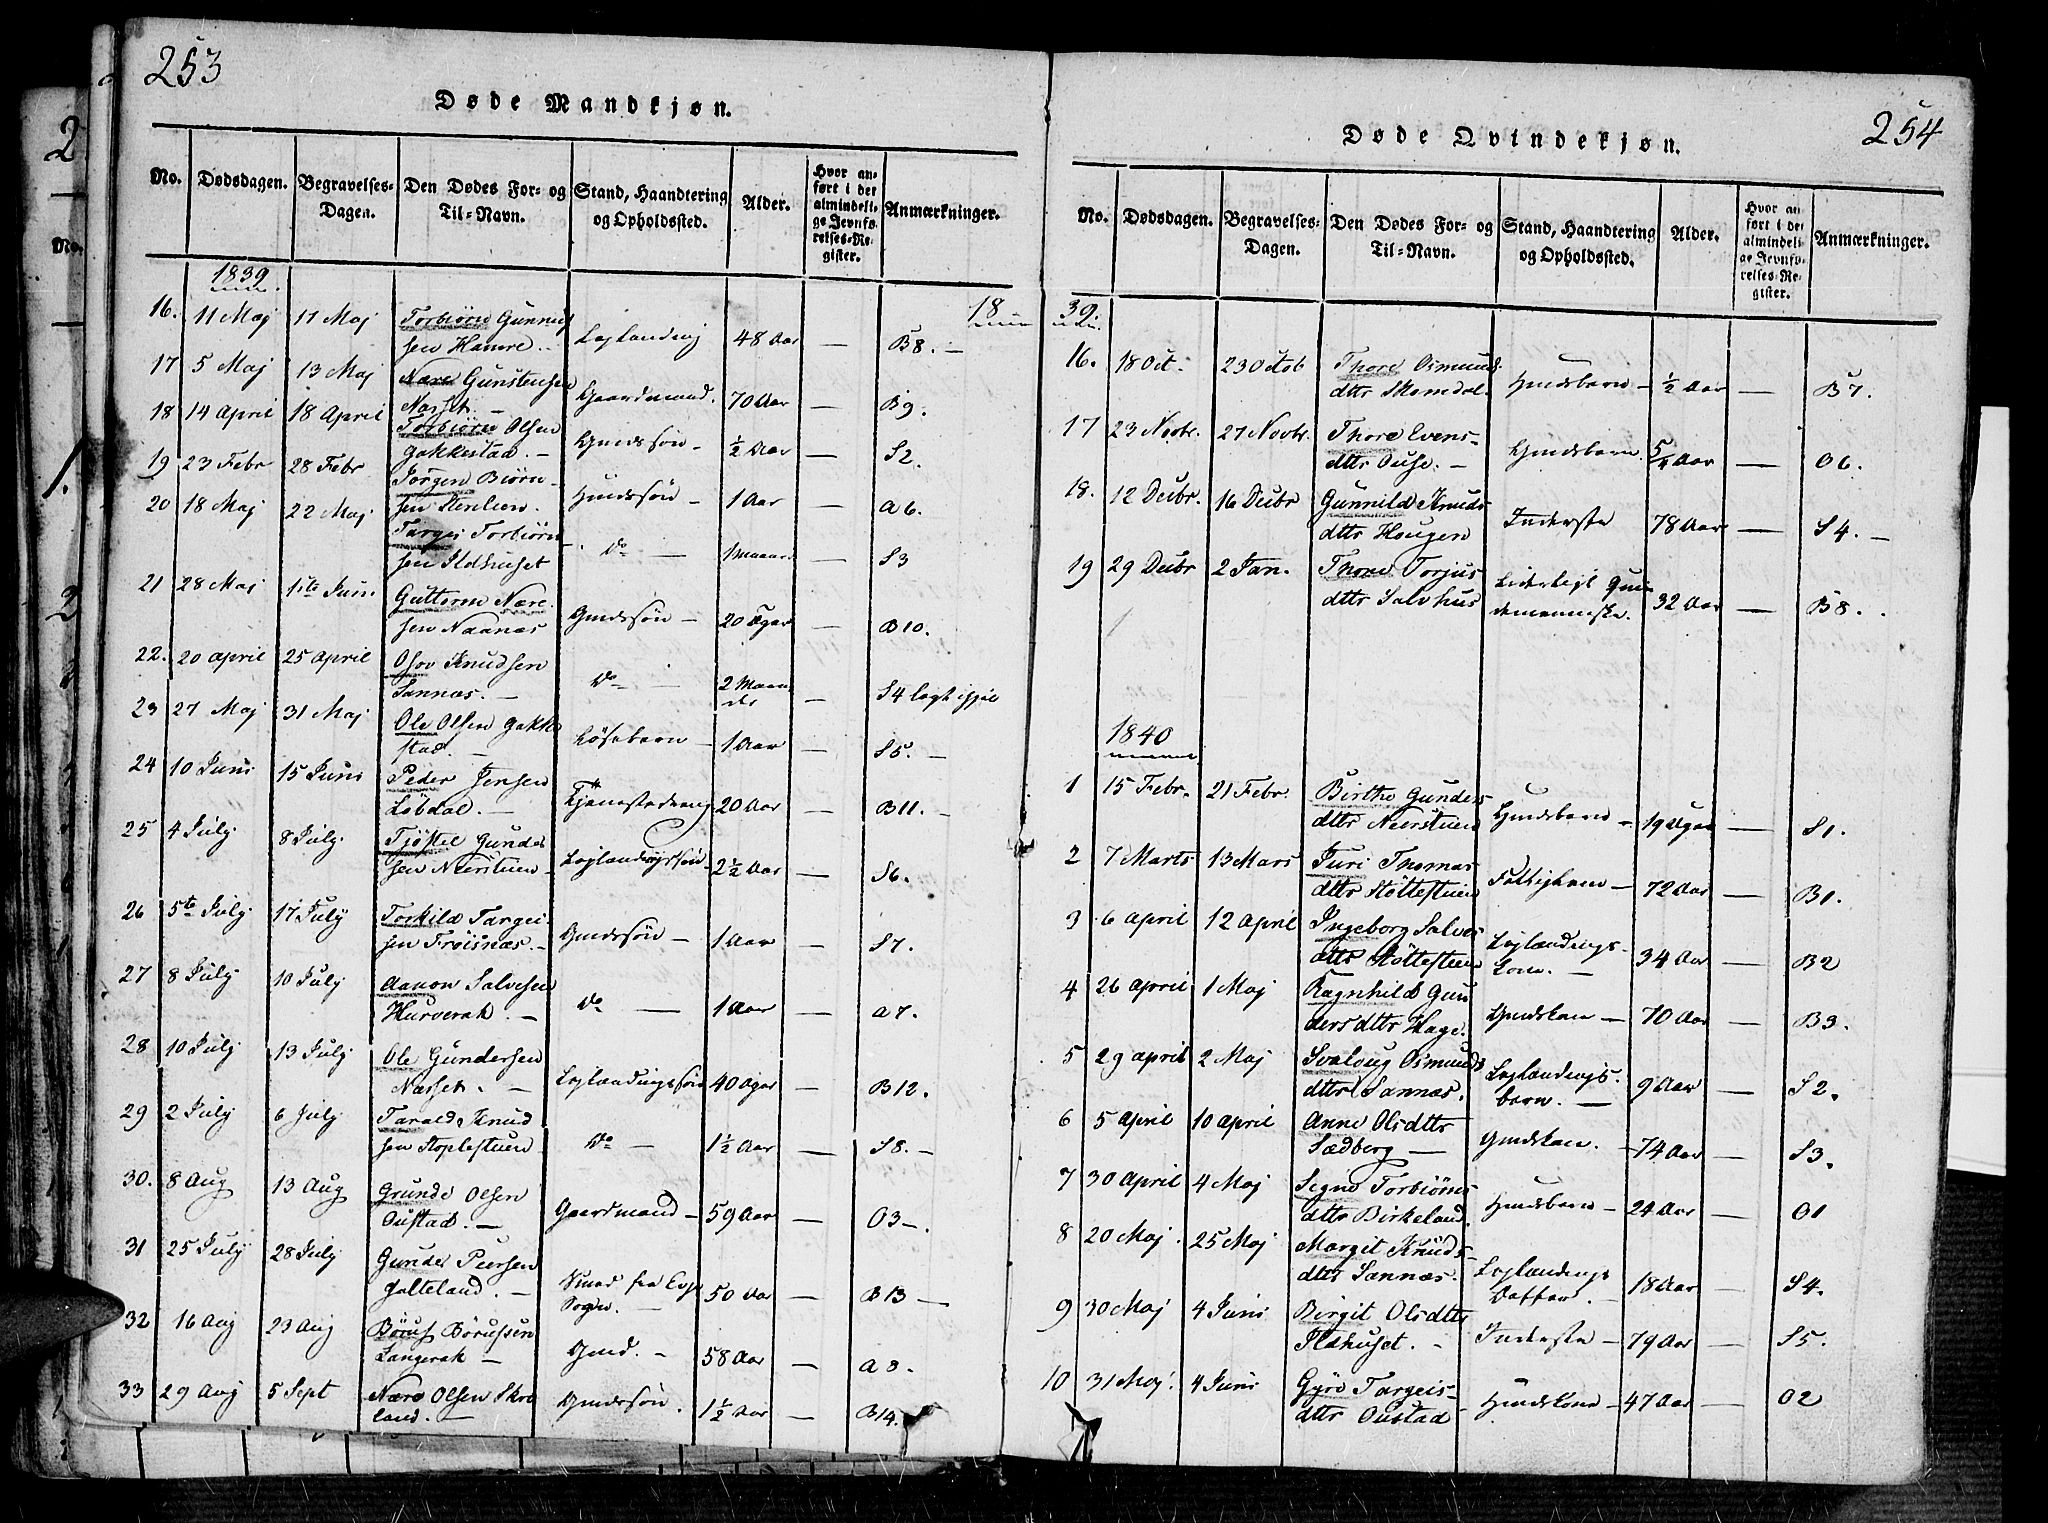 253
Døde Mandkjøn.
No. Dødsdagen. Begravelses-Dagen. Den Dødes For- og Til-Navn. Stand, Haandtering og Opholdssted. Alder. Hvor anført i det almindelige Jevnførelses-Register. Anmærkninger.
1839
16. 11 Maj 17 Maj Torbiørn Gunnuf
sen Hamre. 48 Aar — B8. —
17 5 Maj 13 Maj Nære Gunstensen
Nasset — Gaardmand. 70 Aar — B9.
18 14 April 18 April Torbiørn Olsen
Gakkestad. — Gmdssøn — ½ Aar — S2.
19 23 Febr 28 Febr Jørgen Biørn-
sen Gmdssøn — 1 Aar — A6.
20 18 Maj 22 Maj Targei Torbiørn
sen Ildhuset Do — 1 Maan — S3
21 28 Maj 1ste Juni Guttorm Nære
sen Naanæs Gmdssøn — 20 Uger — B10.
22. 20 April 25 April Osov Knudsen
Sannæs. — Do — 2 Maan
der — S4 lagt ihjel
23 27 Maj 31 Maj Ole Olsen Gakke
stad. — Løsebarn — 1 Aar — S5. —
24 10 Juni 15 Juni Peder Jensen
Løbdal. — 20 Aar — B11. —
25 4 July 8 July. Tjøstel Gunder
sen Neerstuen Lejlændingssøn 2½ Aar — S6.
26 5te July 17 July Torkild Targei
sen Frøisnæs. — Gmdssøn — 1 Aar — S7.
27 8 July 10 July Aanon Salvesen
Hurverak. — Do — 1 Aar — A7.
28 10 July 13 July Ole Gundersen
Nasset. — Lejlændingssøn 40 Uger — B12.
29 2 July 6 July Tarald Knud
sen Stoplestuen Do — 1½ Aar — S8. —
30. 8 Aug 13 Aug Grunde Olsen
Oustad. — Gaardmand — 59 Aar — O3 —.
31 25 July 28 July Gunder Peersen
Galteland. — Mand fra Evje
Sogn. — 50 Aar — B13 —
32 16 Aug 23 Aug Børuf Børufsen
Langerak — Gmd. — 58 Aar — A8.
33 29 Aug 5 Sept Nære Olsen Skra
land. — Gmdssøn. 1½ Aar — B14.
254
Døde Qvindekjøn.
No. Dødsdagen. Begravelses-Dagen. Den Dødes For- og Til-Navn. Stand, Haandtering og Opholdssted. Alder. Hvor anført i det almindelige Jevnførelses-Register. Anmærkninger.
1839.
16. 18 Oct. 23 Octob Thore Osmunds
dttr Skomedal. Gmdsbarn — ½ Aar — B7.
17 23 Novbr. 27 Novbr. Thore Evens-
dttr Ouse. — Gmdsbarn. 5/4 Aar — O6.
18. 12 Decbr. 16 Decbr Gunnild Knuds
dttr Hougen Inderste 78 Aar — S4. —
19 29 Decbr 2 Jan. Thore Torjus
dttr Salvhus 32 Aar — B8.
1840
1 15 Febr. 21 Febr. Birthe Gunders
dttr Neerstuen Gmdsbarn — 19 Uger — S1.
2 7 Marts 13 Mars Juri Thomas
dttr Støttestuen Fattiglem — 72 Aar — B1.
3 6 April 12 April Ingeborg Salves
dttr Støttestuen Lejlændings-
kone. — 34 Aar — B2
4 26 April 1 Maj Ragnhild Gun
dersdttr Hage. Gmdskone — 70 Aar — B3.
5 29 April 2 Maj Svaloug Osmunds
dttr Sannæs. Lejlændings-
barn. — 9 Aar — S2.
6 5 April 10 April Anne Olsdttr
Sædberg — Gmdskone. 74 Aar — S3.
7 30 April 4 Maj Segne Torbiøns
dttr Birkeland. Gmdsbarn — 24 Aar — O1
8 20 Maj. 25 Maj Margit Knuds-
dttr Sannæs. Lejlændings
Datter. — 18 Aar — S4.
9 30 Maj 4 Juni Birgit Olsdttr
Ildhuset. Inderste — 79 Aar — S5.
10 31 Maj. 4 Juni Gyro Targeis-
dttr Oustad Gmdskone — 47 Aar — O2